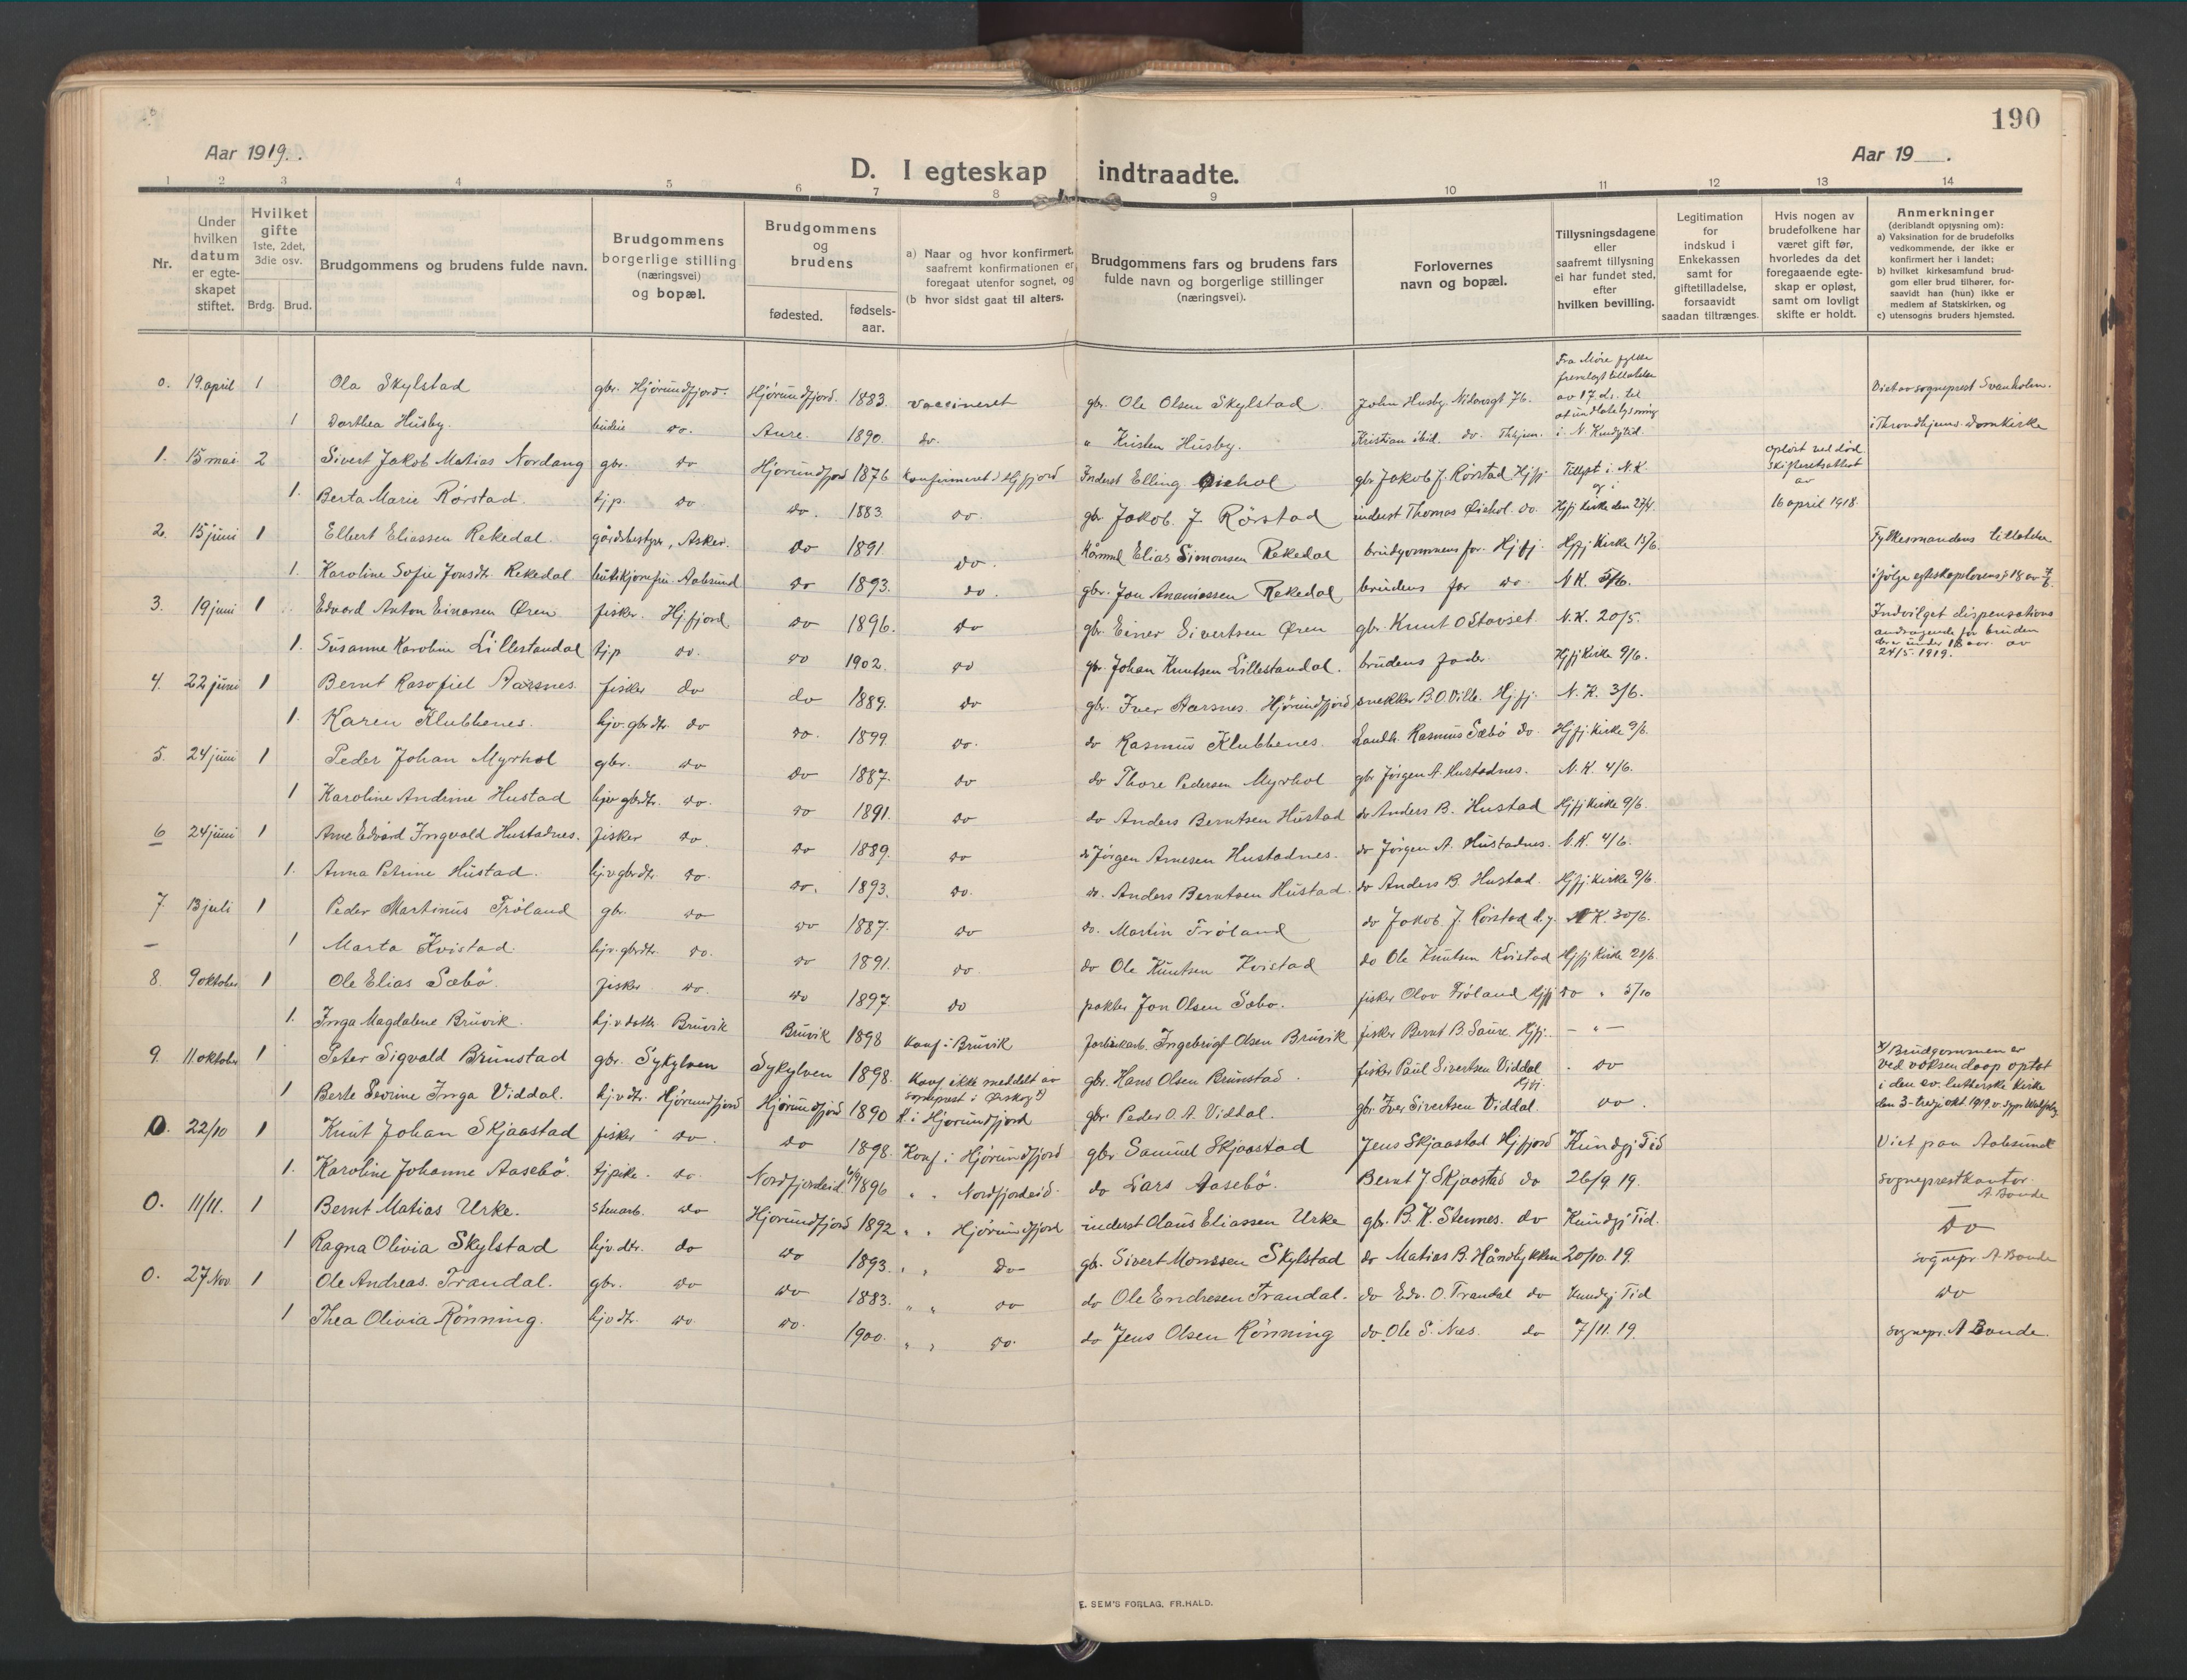 190
Aar 1919.
Aar 19___.
D. I egteskap indtraadte.
1 2 3 4 5 6 7 8 9 10 11 12 13 14
Nr.
Under hvilken datum er egte-skapet stiftet.
Hvilket gifte 1ste, 2det, 3die osv.
Brdg. Brud.
Brudgommens og brudens fulde navn.
Brudgommens borgerlige stilling (næringsvei) og bopæl.
Brudgommens og brudens
fødested. fødsels-aar.
a) Naar og hvor konfirmert, saafremt konfirmationen er foregaat utenfor sognet, og (b hvor sidst gaat til alters.
Brudgommens fars og brudens fars fulde navn og borgerlige stillinger (næringsvei).
Forlovernes navn og bopæl.
Tillysningsdagene eller saafremt tillysning ei har fundet sted, efter hvilken bevilling.
Legitimation for indskud i Enkekassen samt for giftetilladelse, forsaavidt saadan tiltrænges.
Hvis nogen av brudefolkene har været gift før, hvorledes da det foregaaende egte-skap er opløst, samt om lovligt skifte er holdt.
Anmerkninger (deriblandt opjysning om): a) Vaksination for de brudefolks vedkommende, der ikke er konfirmert her i landet; b) hvilket kirkesamfund brud-gom eller brud tilhører, for-saavidt han (hun) ikke er medlem af Statskirken, og c) utensogns bruders hjemsted.
0. 19 april 1 Ola Skylstad gbr. Hjørundfjord. Hjørundfjord. 1883. vaccineret gbr. Ole Olsen Skylstad John Husby. Nidarsgt 76. Fra Møre fylke av 17 ds. til Viet av sogneprest Svanholm.
1 Dorthea Husby. do. Aure. 1890. do. " Kristen Husby. Kristian ibid. do. Thhjem. i N. Kundgtid. i Throndhjems Domkirke
1. 15 mai 2 Sivert Jakob Matias Nordang gbr. do Hjørundfjord 1876 konfirmeret i Hjfjord Inderst Elling Øiehol gbr Jakob J. Rørstad Hjfj. Tillyst i N.K. og i opløst ved død. Skifteretsattest av
1. Berta Marie Rørstad. tjp. do do. 1883. do. gbr Jakob J. Rørstad inderst Thomas Øiehol. do. Hjfj kirke den 27/4. 16 april 1918.
2. 15 juni 1 Elbert Eliassen Rekedal. gårdsbestyrer, Asker. do 1891 do. Elias Simonsen Rekedal brudgommens far. Hjfj. Hjfj Kirke 15/6. Fylkesmandens tilladelse
1. Karoline Sofie Jonsdtr. Rekedal Aalesund do 1893. do. gbr. Jon Ananiassen Rekedal brudens far do. N.K. 5/6. ifølge egteskapslovens § 18 av 7/6.
3. 19 juni 1 Edvard Anton Einarsen Øren fisker. Hjfjord do 1896. do gbr. Einer Sivertsen Øren gbr. Knut O Stavset. N.K. 20/5. Indvilget dispensations andragende for bruden der er under 18 aar av 24/5. 1919.
1. Susanne Karoline Lillestandal tjp do. do 1902. do gbr. Johan Knutsen Lillestandal. brudens fader. Hjfj kirke 9/6.
4. 22 juni 1 Bernt Rasofiel Aarsnes. fisker do do 1889. do gbr. Iver Aarsnes. Hjørundfjord snekker B.O. Hjfj. N.K. 3/6.
1. Karen Klubbenes. hjv. gbrdtr. do do. 1899. do. do Rasmus Klubbenes. Landh. Rasmus Sæbø do. Hjfj. kirke 9/6.
5. 24 juni 1 Peder Johan Myrhol gbr. do do 1887. do do Thore Pedersen Myrhol gbr Jørgen A. Hustadnes. N.K. 4/6.
1 Karoline Andrine Hustad hjv gbrdtr. do. do 1891. do do Anders Berntsen Hustad do Anders B. Hustad Hjfj kirke 9/6.
6 24 juni 1 Arne Edvard Ingvald Hustadnes. fisker do. do 1889. do do Jørgen Arnesen Hustadnes. do Jørgen A. Hustadnes. N.K. 4/6.
1. Anna Petrine Hustad. hjv gbrdtr. do. do. 1893. do. do. Anders Berntsen Hustad. do Anders B. Hustad. Hjfj. kirke 9/6.
7. 13 juli 1 Peder Martinus Frøland gbr. do do 1887. do do. Martin Frøland do Jakob J. Rørstad d.y. N.K. 30/6.
1 Marta Kvistad. hjv. gbrdtr. do. do 1891. do. do Ole Knutsen Kvistad do Ole Knutsen Kvistad Hjfj kirke
8. 9 oktober 1 Ole Elias Sæbø. fisker do. do 1897. do pakter Jon Olsen Sæbø. fisker Olav Frøland Hjfj do " 5/10
1. Inga Magdalene Bruvik. hj.v datter Bruvik Bruvik 1898 Konf i Bruvik Ingebrigt Olsen Bruvik fisker Bernt B. Saure. Hjfj. - " -
9. 11 oktober 1 Peter Sigvald Brunstad gbr. Sykylven Sykylven 1898. Konf. ikke meddelt av sogneprest i Ørskog x) gbr. Hans Olsen Brunstad. fisker Paul Sivertsen Viddal Hjfj. . do x) Brudgommen er ved voksendaap optat i den ev. lutherske kirke den 3-tredje okt. 1919. v.
1 Berte Sevrine Inga Viddal. hj.v.dtr. Hjørundfjord Hjørundfjord 1890 K. i Hjørundfjord gbr. Peder O. A. Viddal. gbr. Iver Sivertsen Viddal. do.
0. 22/10 1 Knut Johan Skjaastad fisker do. do 1898. Konf. i Hjørundfjord gbr Samuel Skjaastad Jens Skjaastad Hjfjord Kundgj Tid Viet paa Aalesund
1. Karoline Johanne Aasebø. tjpike. do. Nordfjordeid. 1896 " " Nordfjordeid. do Lars Aasebø. Bernt J Skjaastad do 26/9 19. sogneprestkontor. A. Bonde
0. 11/11. 1 Bernt Matias Urke. stenarb. do Hjorundfjord 1892 " " Hjørundfjord inderst Olaus Eliassen Urke gbr. B. K. Stennes. do Kundgj Tid. do
1 Ragna Olivia Skylstad hjv. dtr. do do 1893. " " do gbr. Sivert Monssen Skylstad do Matias B. Håndlykken 20/10. 19. sognepr. A. Bonde
0. 27 Nov 1 Ole Andreas. Trandal. gbr. do do 1883. " " do do Ole Endresen Trandal. do Edv. O. Trandal do Kundgj Tid do
1 Thea Olivia Rønning. hjv dtr. do do. 1900. " " do. do Jens Olsen Rønning do. Ole S. Næs. do 7/11. 19. sognepr. A Bonde.
E. SEM'S FORLAG, FR.HALD.